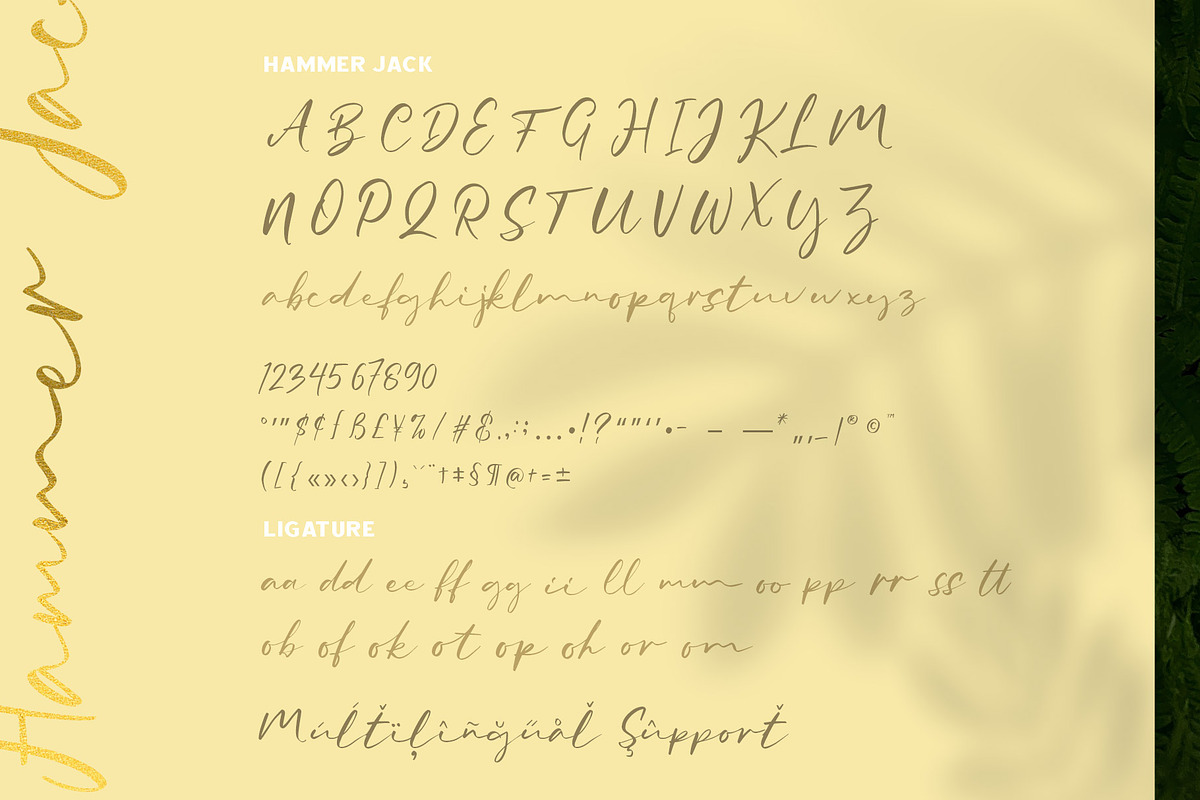 Hammer Jac
HAMMER JACK
A B C D E F G H I J K L M
N O P Q R S T U V W X Y Z
a b c d e f g h i j k l m n o p q r s t u v w x y z
1 2 3 4 5 6 7 8 9 0
° ' " $ ¢ f ß £ ¥ % / # & . , : ; … • ! ? “ ” ‘ ’ • - – — * „ ‚ _ | ® © ™
( [ { « » ‹ › } ] ) ¸ ` ´ ¨ † ‡ § ¶ @ + = ±
LIGATURE
aa dd ee ff gg ii ll mm oo pp rr ss tt
ob of ok ot op oh or om
Múĺťïļîñğűåľ Şûpporť